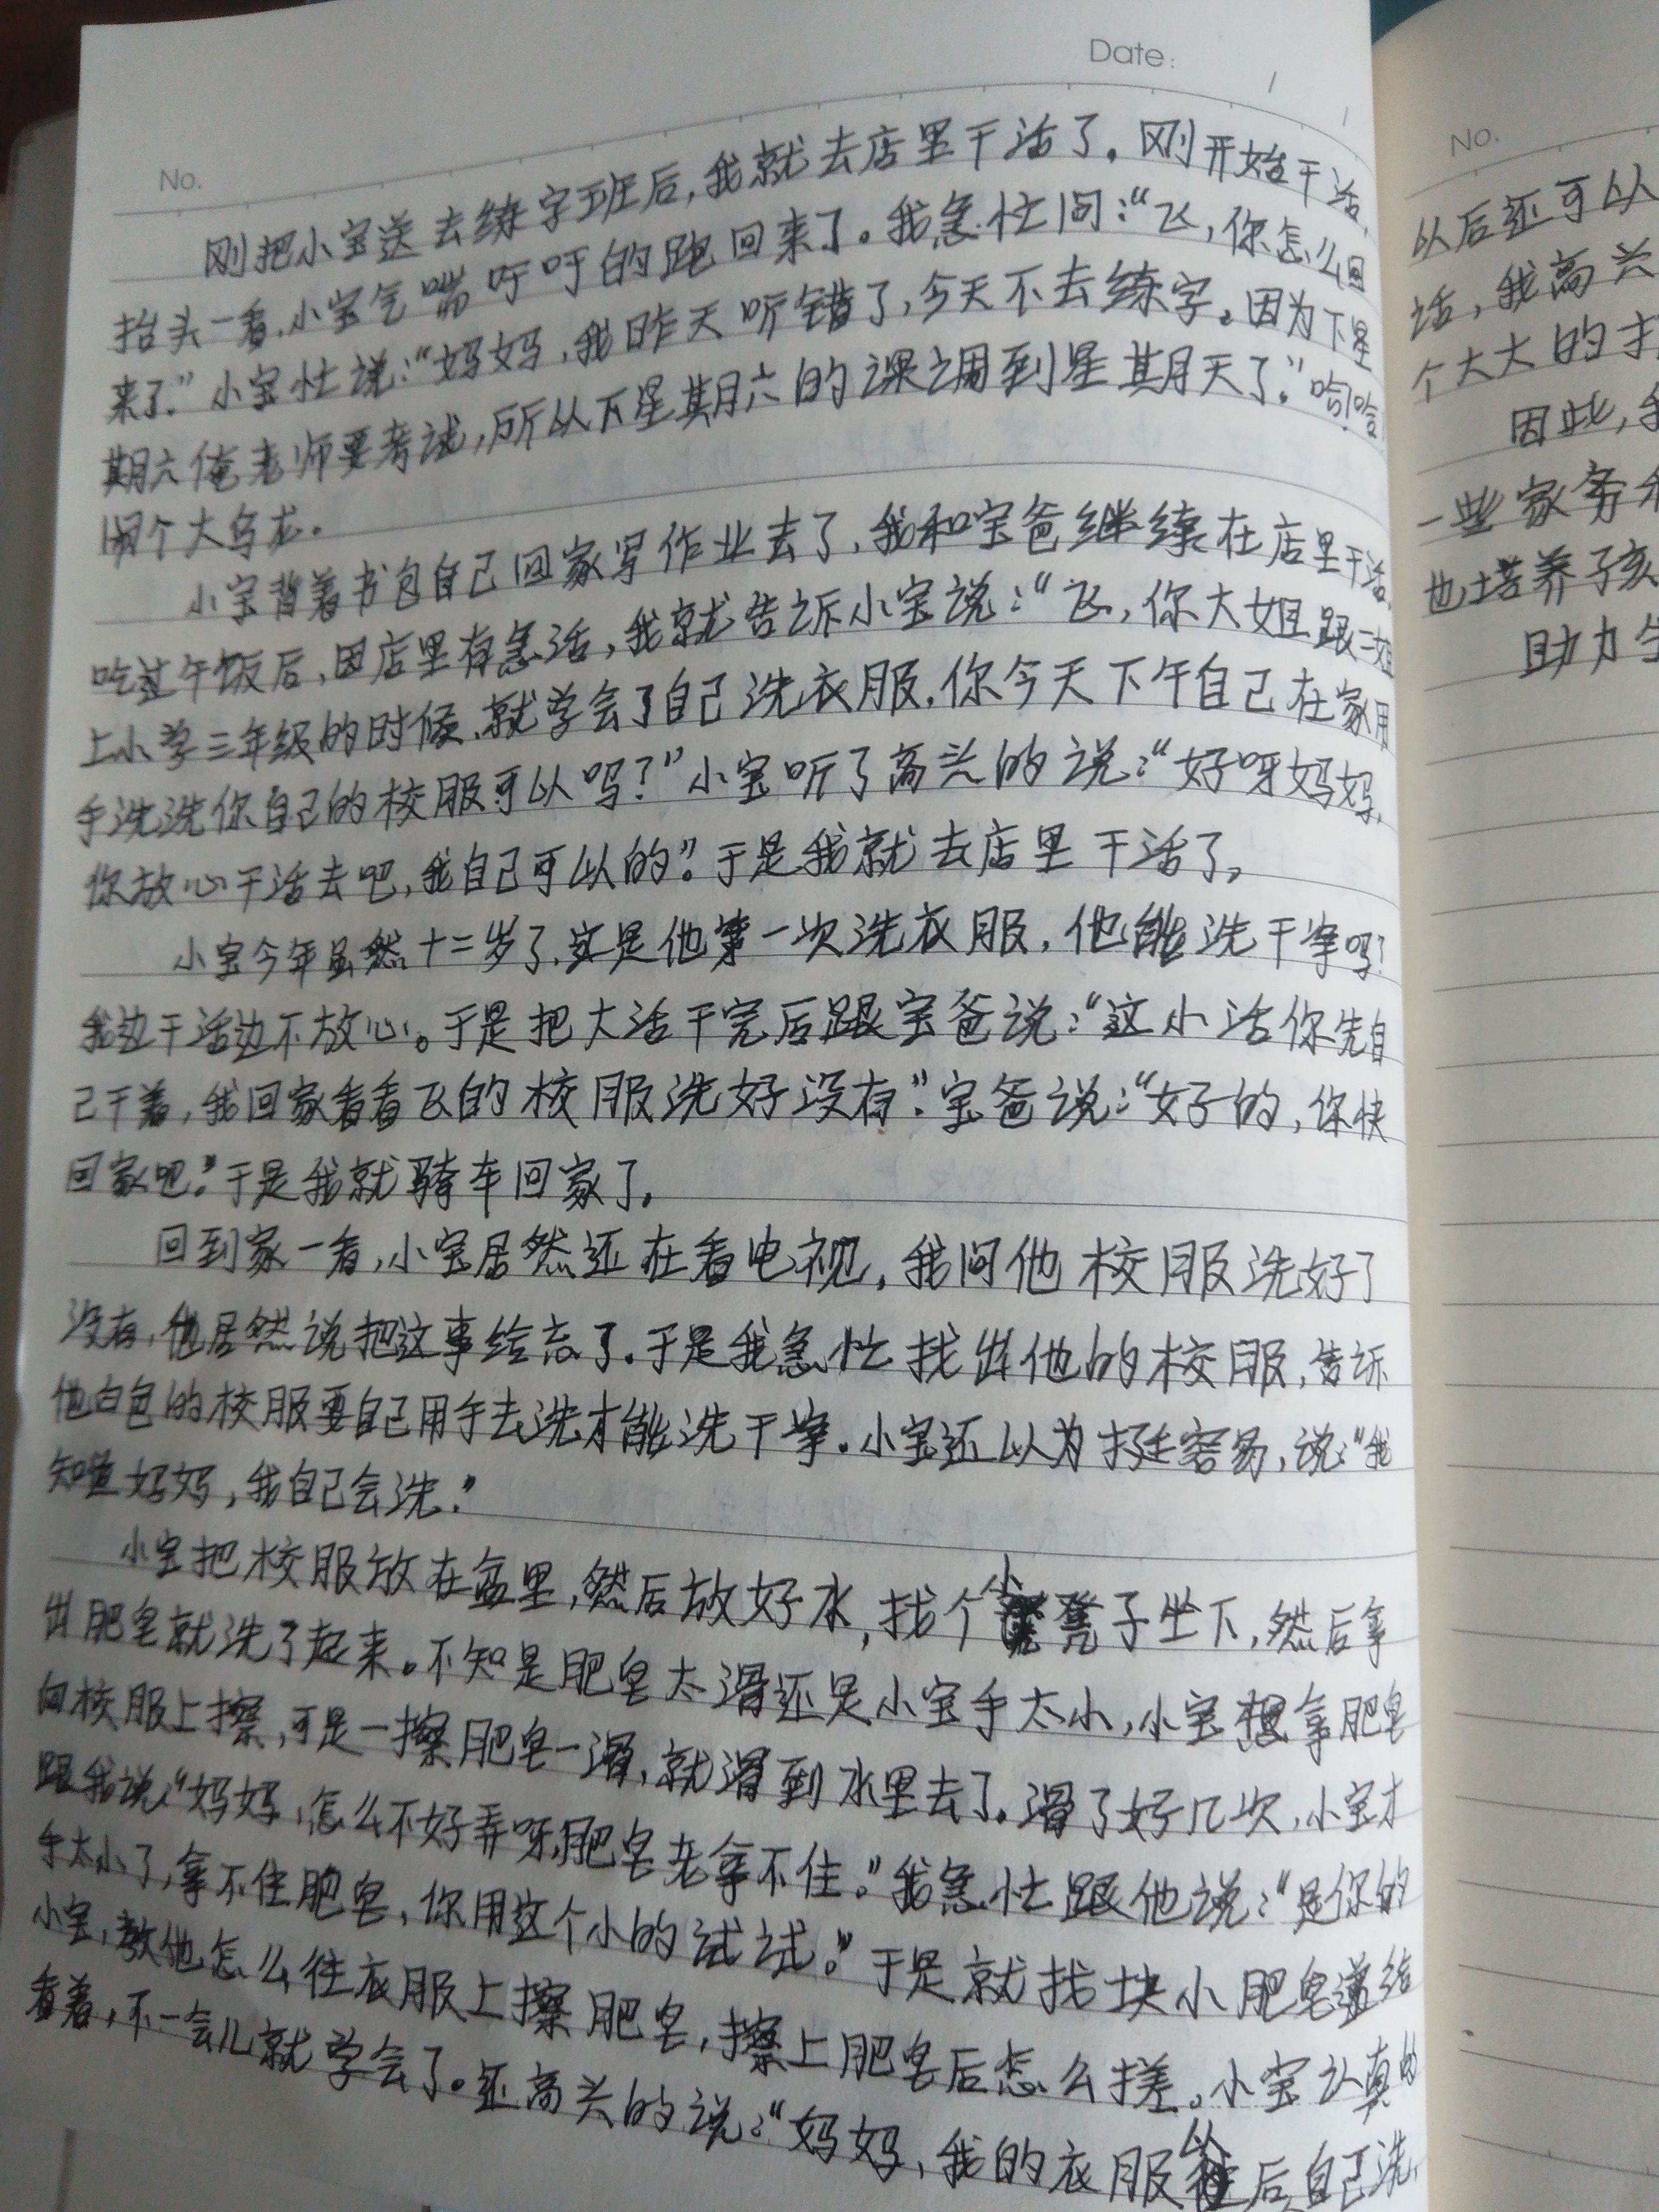 Date:
No.
刚把小宝送去练字班后,我就去店里干活了。刚开始干活,
抬头一看,小宝气喘吁吁的跑回来了。我急忙问:“飞,你怎么回
来了。”小宝忙说:“妈妈,我昨天听错了,今天不去练字。因为下星
期六俺老师要考试,所以下星期六的课调到星期天了。”哈哈
闹个大乌龙。
小宝背着书包自己回家写作业去了,我和宝爸继续在店里干活。
吃过午饭后,因店里有急活,我就告诉小宝说:“飞,你大姐跟二姐
上小学三年级的时候,就学会了自己洗衣服,你今天下午自己在家用
手洗洗你自己的校服可以吗?”小宝听了高兴的说:“好呀妈妈,
你放心干活去吧,我自己可以的”。于是我就去店里干活了。
小宝今年虽然十二岁了,这是他第一次洗衣服,他能洗干净吗?
我边干活边不放心。于是把大活干完后跟宝爸说:“这小活你先自
己干着,我回家看看飞的校服洗好没有”。宝爸说:“好的,你快
回家吧。”于是我就骑车回家了。
回到家一看,小宝居然还在看电视,我问他校服洗好了
没有,他居然说把这事给忘了。于是我急忙找出他的校服,告诉
他白色的校服要自己用手去洗才能洗干净。小宝还以为挺容易,说:“我
知道妈妈,我自己会洗。”
小宝把校服放在盆里,然后放好水,找个小凳子坐下,然后拿
出肥皂就洗了起来。不知是肥皂太滑还是小宝手太小,小宝想拿肥皂
向校服上擦,可是一擦肥皂一滑,就滑到水里去了。滑了好几次,小宝才
跟我说“妈妈,怎么不好弄呀,肥皂老拿不住。”我急忙跟他说:“是你的
手太小了,拿不住肥皂,你用这个小的试试。”于是就找块小肥皂递给
小宝,教他怎么往衣服上擦肥皂,擦上肥皂后怎么搓。小宝认真的
看着,不一会儿就学会了。还高兴的说:“妈妈,我的衣服以后自己洗,
No.
以后还可以
话,我高兴
个大大的
因此,我
一些家务
也培养子孩
助力